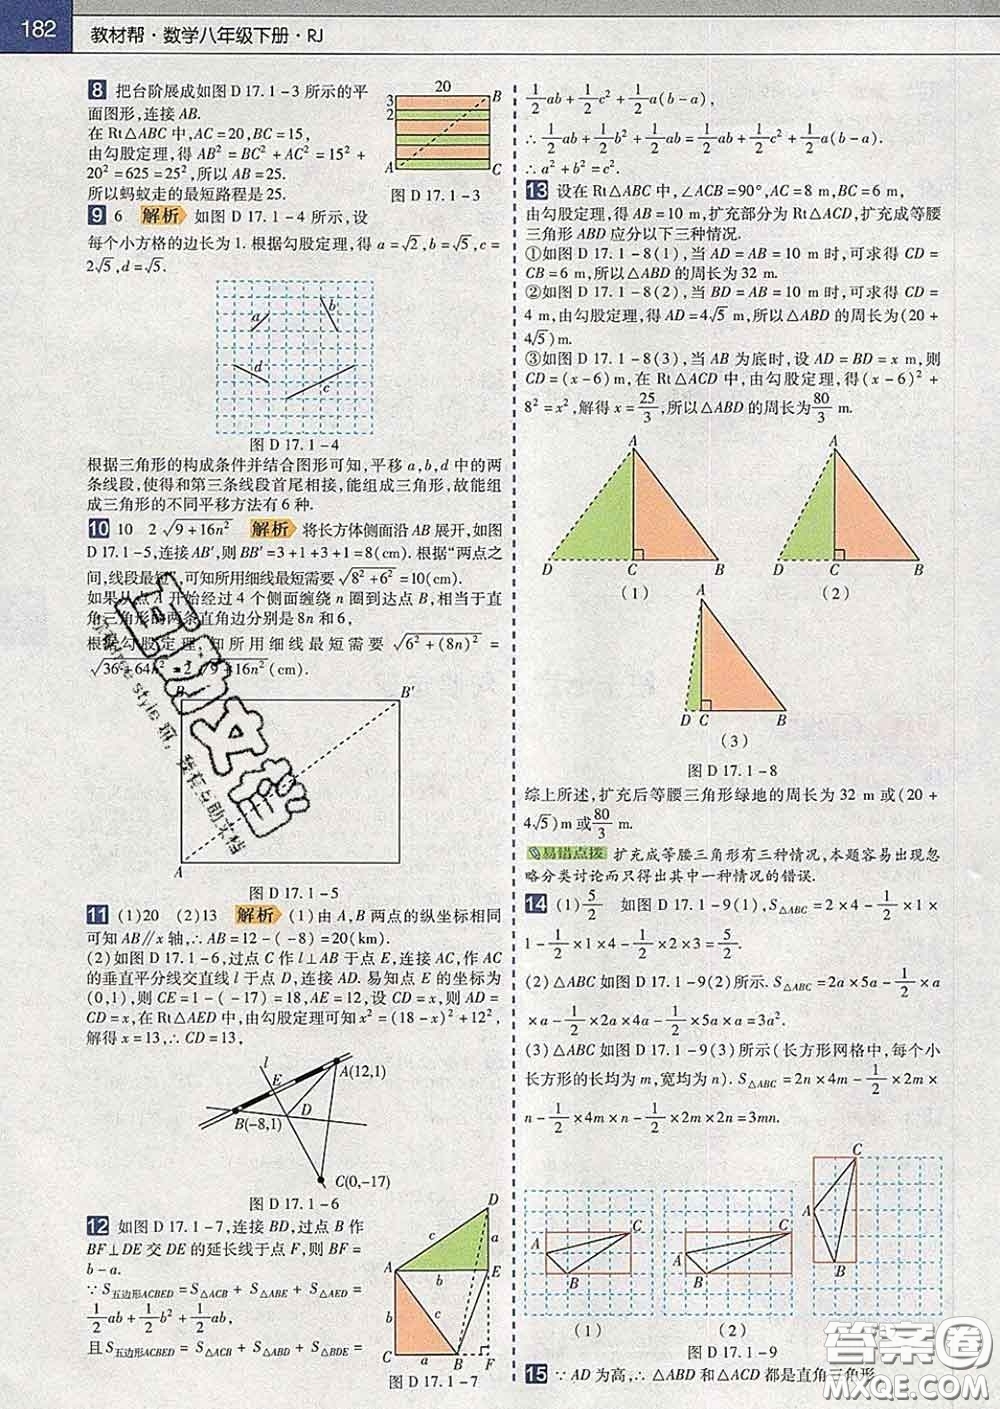 182 教材帮·数学八年级下册·RJ
8 把台阶展成如图 D 17.1-3 所示的平
面图形,连接 AB.
在 Rt△ABC 中,AC=20,BC=15,
由勾股定理,得 AB²=BC²+AC²=15²+
20²=625=25²,所以 AB=25.
所以蚂蚁走的最短路程是 25.
20
3
2
A
B
C
图 D 17.1-3
9 6 解析 如图 D 17.1-4 所示,设
每个小方格的边长为 1.根据勾股定理,得 a=√2,b=√5,c=
2√5,d=√5.
a
b
d
c
图 D 17.1-4
根据三角形的构成条件并结合图形可知,平移 a,b,d 中的两
条线段,使得和第三条线段首尾相接,能组成三角形,故能组
成三角形的不同平移方法有 6 种.
10 10 2√(9+16n²) 解析 将长方体侧面沿 AB 展开,如图
D 17.1-5,连接 AB′,则 BB′=3+1+3+1=8(cm).根据“两点之
间,线段最短”,可知所用细线最短需要 √(8²+6²)=10(cm).
如果从点 A 开始经过 4 个侧面缠绕 n 圈到达点 B,相当于直
角三角形的两条直角边分别是 8n 和 6,
根据勾股定理,知所用细线最短需要 √(6²+(8n)²) =
√(36+64n²)=2√(9+16n²)(cm).
B
B′
A
图 D 17.1-5
11 (1)20 (2)13 解析 (1)由 A,B 两点的纵坐标相同
可知 AB∥x 轴,∴AB=12-(-8)=20(km).
(2)如图 D 17.1-6,过点 C 作 l⊥AB 于点 E,连接 AC,作 AC
的垂直平分线交直线 l 于点 D,连接 AD.易知点 E 的坐标为
(0,1),则 CE=1-(-17)=18,AE=12,设 CD=x,则 AD=
CD=x,在 Rt△AED 中,由勾股定理可知 x²=(18-x)²+12²,
解得 x=13,∴CD=13,
l
E
A(12,1)
D
B(-8,1)
C(0,-17)
图 D 17.1-6
12 如图 D 17.1-7,连接 BD,过点 B 作
BF⊥DE 交 DE 的延长线于点 F,则 BF=
b-a.
∵S五边形ACBED=S△ACB+S△ABE+S△AED=
1/2ab+1/2b²+1/2ab,
且 S五边形ACBED=S△ACB+S△ABD+S△BDE=
D
c
a
A
b
E
b
c
C
a
B
F
图 D 17.1-7
1/2ab+1/2c²+1/2a(b-a),
∴1/2ab+1/2b²+1/2ab=1/2ab+1/2c²+1/2a(b-a),
∴a²+b²=c².
13 设在 Rt△ABC 中,∠ACB=90°,AC=8 m,BC=6 m,
由勾股定理,得 AB=10 m,扩充部分为 Rt△ACD,扩充成等腰
三角形 ABD 应分以下三种情况.
①如图 D 17.1-8(1),当 AD=AB=10 m 时,可求得 CD=
CB=6 m,所以△ABD 的周长为 32 m.
②如图 D 17.1-8(2),当 BD=AB=10 m 时,可求得 CD=
4 m,由勾股定理,得 AD=4√5 m,所以△ABD 的周长为(20+
4√5)m.
③如图 D 17.1-8(3),当 AB 为底时,设 AD=BD=x m,则
CD=(x-6)m,在 Rt△ACD 中,由勾股定理,得(x-6)²+
8²=x²,解得 x=25/3,所以△ABD 的周长为80/3 m.
A
D
C
B
(1)
A
D
C
B
(2)
A
D
C
B
(3)
图 D 17.1-8
综上所述,扩充后等腰三角形绿地的周长为 32 m 或(20+
4√5)m 或80/3 m.
易错点拨 扩充成等腰三角形有三种情况,本题容易出现忽
略分类讨论而只得出其中一种情况的错误.
14 (1)5/2 如图 D 17.1-9(1),S△ABC=2×4-1/2×1×
1-1/2×1×4-1/2×2×3=5/2.
(2)△ABC 如图 D 17.1-9(2)所示.S△ABC=2a×5a-1/2×a
×a-1/2×2a×4a-1/2×5a×a=3a².
(3)△ABC 如图 D 17.1-9(3)所示(长方形网格中,每个小
长方形的长均为 m,宽均为 n).S△ABC=2n×4m-1/2×2m×
n-1/2×4m×n-1/2×2m×2n=3mn.
A
B
C
(1)
A
B
C
(2)
A
B
C
图 D 17.1-9
15 ∵AD 为高,∴△ABD 和△ACD 都是直角三角形
答案圈
MXQE.COM